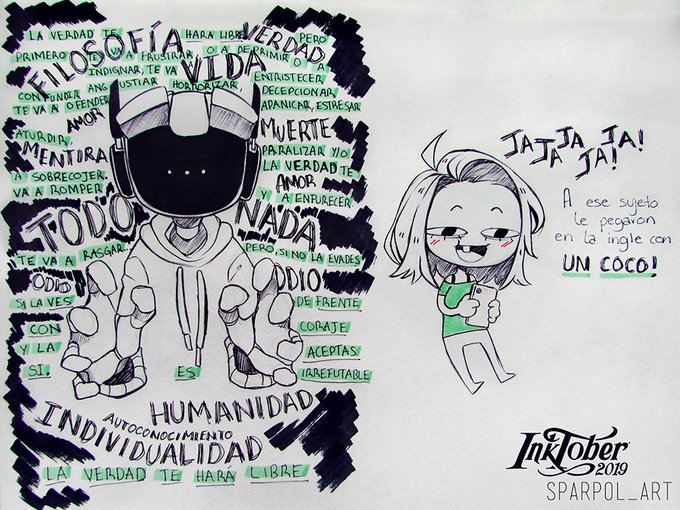 LA VERDAD TE HARA LIBRE PERO
FILOSOFÍA VERDAD,
PRIMERO TE VA A FRUSTRAR O A DEPRIMIR O A
INDIGNAR, TE VA VIDA ENTRISTECER,
CONFUNDIR ANGUSTIAR HORRORIZAR, DECEPCIONAR
TE VA A OFENDER APANICAR, ESTRESAR
AMOR
ATURDIR, MUERTE
MENTIRA PARALIZAR Y/O
A SOBRECOJER. LA VERDAD TE
VA A ROMPER AMOR
Y A ENFURECER
TODO NADA
TE VA A RASGAR. PERO, SI NO LA EVADES
ODIO ODIO
SI LA VES DE FRENTE
CON CORAJE
Y LA ACEPTAS
SI. ES IRREFUTABLE
HUMANIDAD
AUTOCONOCIMIENTO
INDIVIDUALIDAD
LA VERDAD TE HARÁ LIBRE
JA JA JA JA!
JA JA!
A ese sujeto
le pegaron
en la ingle con
UN COCO!
InkTober
2019
SPARPOL_ART